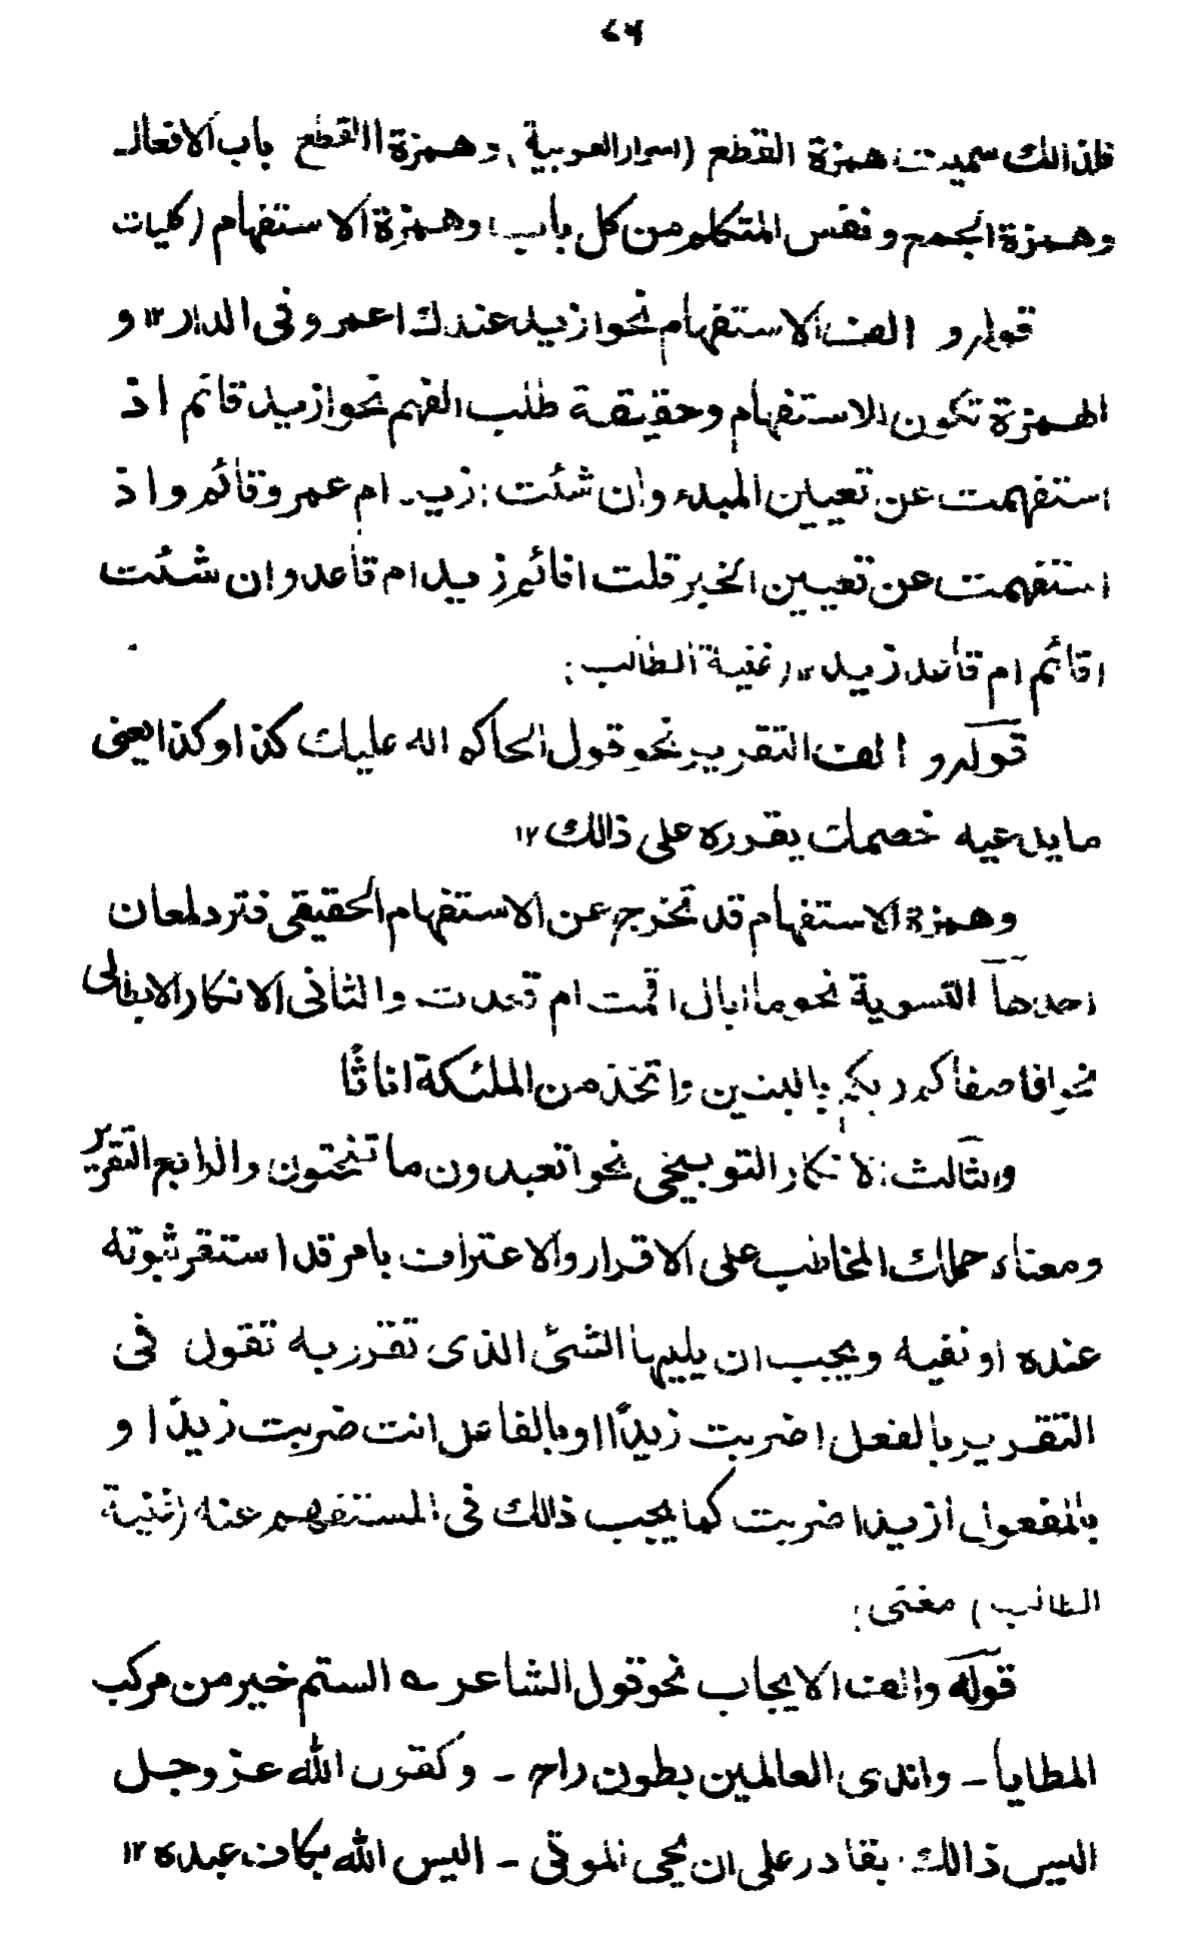 فلذالك سميت همزة القطع (اسرار العربية) وهمزة القطع باب الافعال
وهمزة الجمع ونفس المتكلم من كل باب وهمزة الاستفهام (كليات
قوله و الف الاستفهام نحو ازيد عندك اعمرو فى الدار ١٢ و
الهمزة تكون للاستفهام وحقيقة طلب الفهم نحو ازيد قائم اذ
استفهمت عن تعيين المبدء وان شئت ازيد ام عمرو قائم واذ
استفهمت عن تعيين الخبر قلت اقائم زيد ام قاعد وان شئت
اقائم ام قاعد زيد ١٢ (غنية الطالب)
قوله و الف التقرير نحو قول الحاكم اله عليك كذا وكذا يعنى
ما يدعيه خصمك يقرره على ذالك ١٢
وهمزة الاستفهام قد تخرج عن الاستفهام الحقيقى فترد لمعان
احدها التسوية نحو ما ابال اقمت ام قعدت والثانى الانكار الابطالى
نحو افاصفاكم ربكم بالبنين واتخذ من الملئكة اناثًا
والثالث الانكار التوبيخى نحو اتعبدون ما تنحتون والرابع التقرير
ومعناه حملك المخاطب على الاقرار والاعتراف بامر قد استقر ثبوته
عنده او نفيه ويجب ان يليها الشئى الذى تقرر به تقول فى
التقرير بالفعل اضربت زيدًا او بالفاعل اانت ضربت زيدًا و
بالمفعول ازيدا ضربت كما يجب ذالك فى المستفهم عنه (غنية
الطالب) مغنى
قوله والف الايجاب نحو قول الشاعر ــه الستم خير من مركب
المطايا - واندى العالمين بطون راح - وكقول الله عزوجل
اليس ذالك بقادر على ان يحى الموتى - اليس الله بكاف عبده ١٢